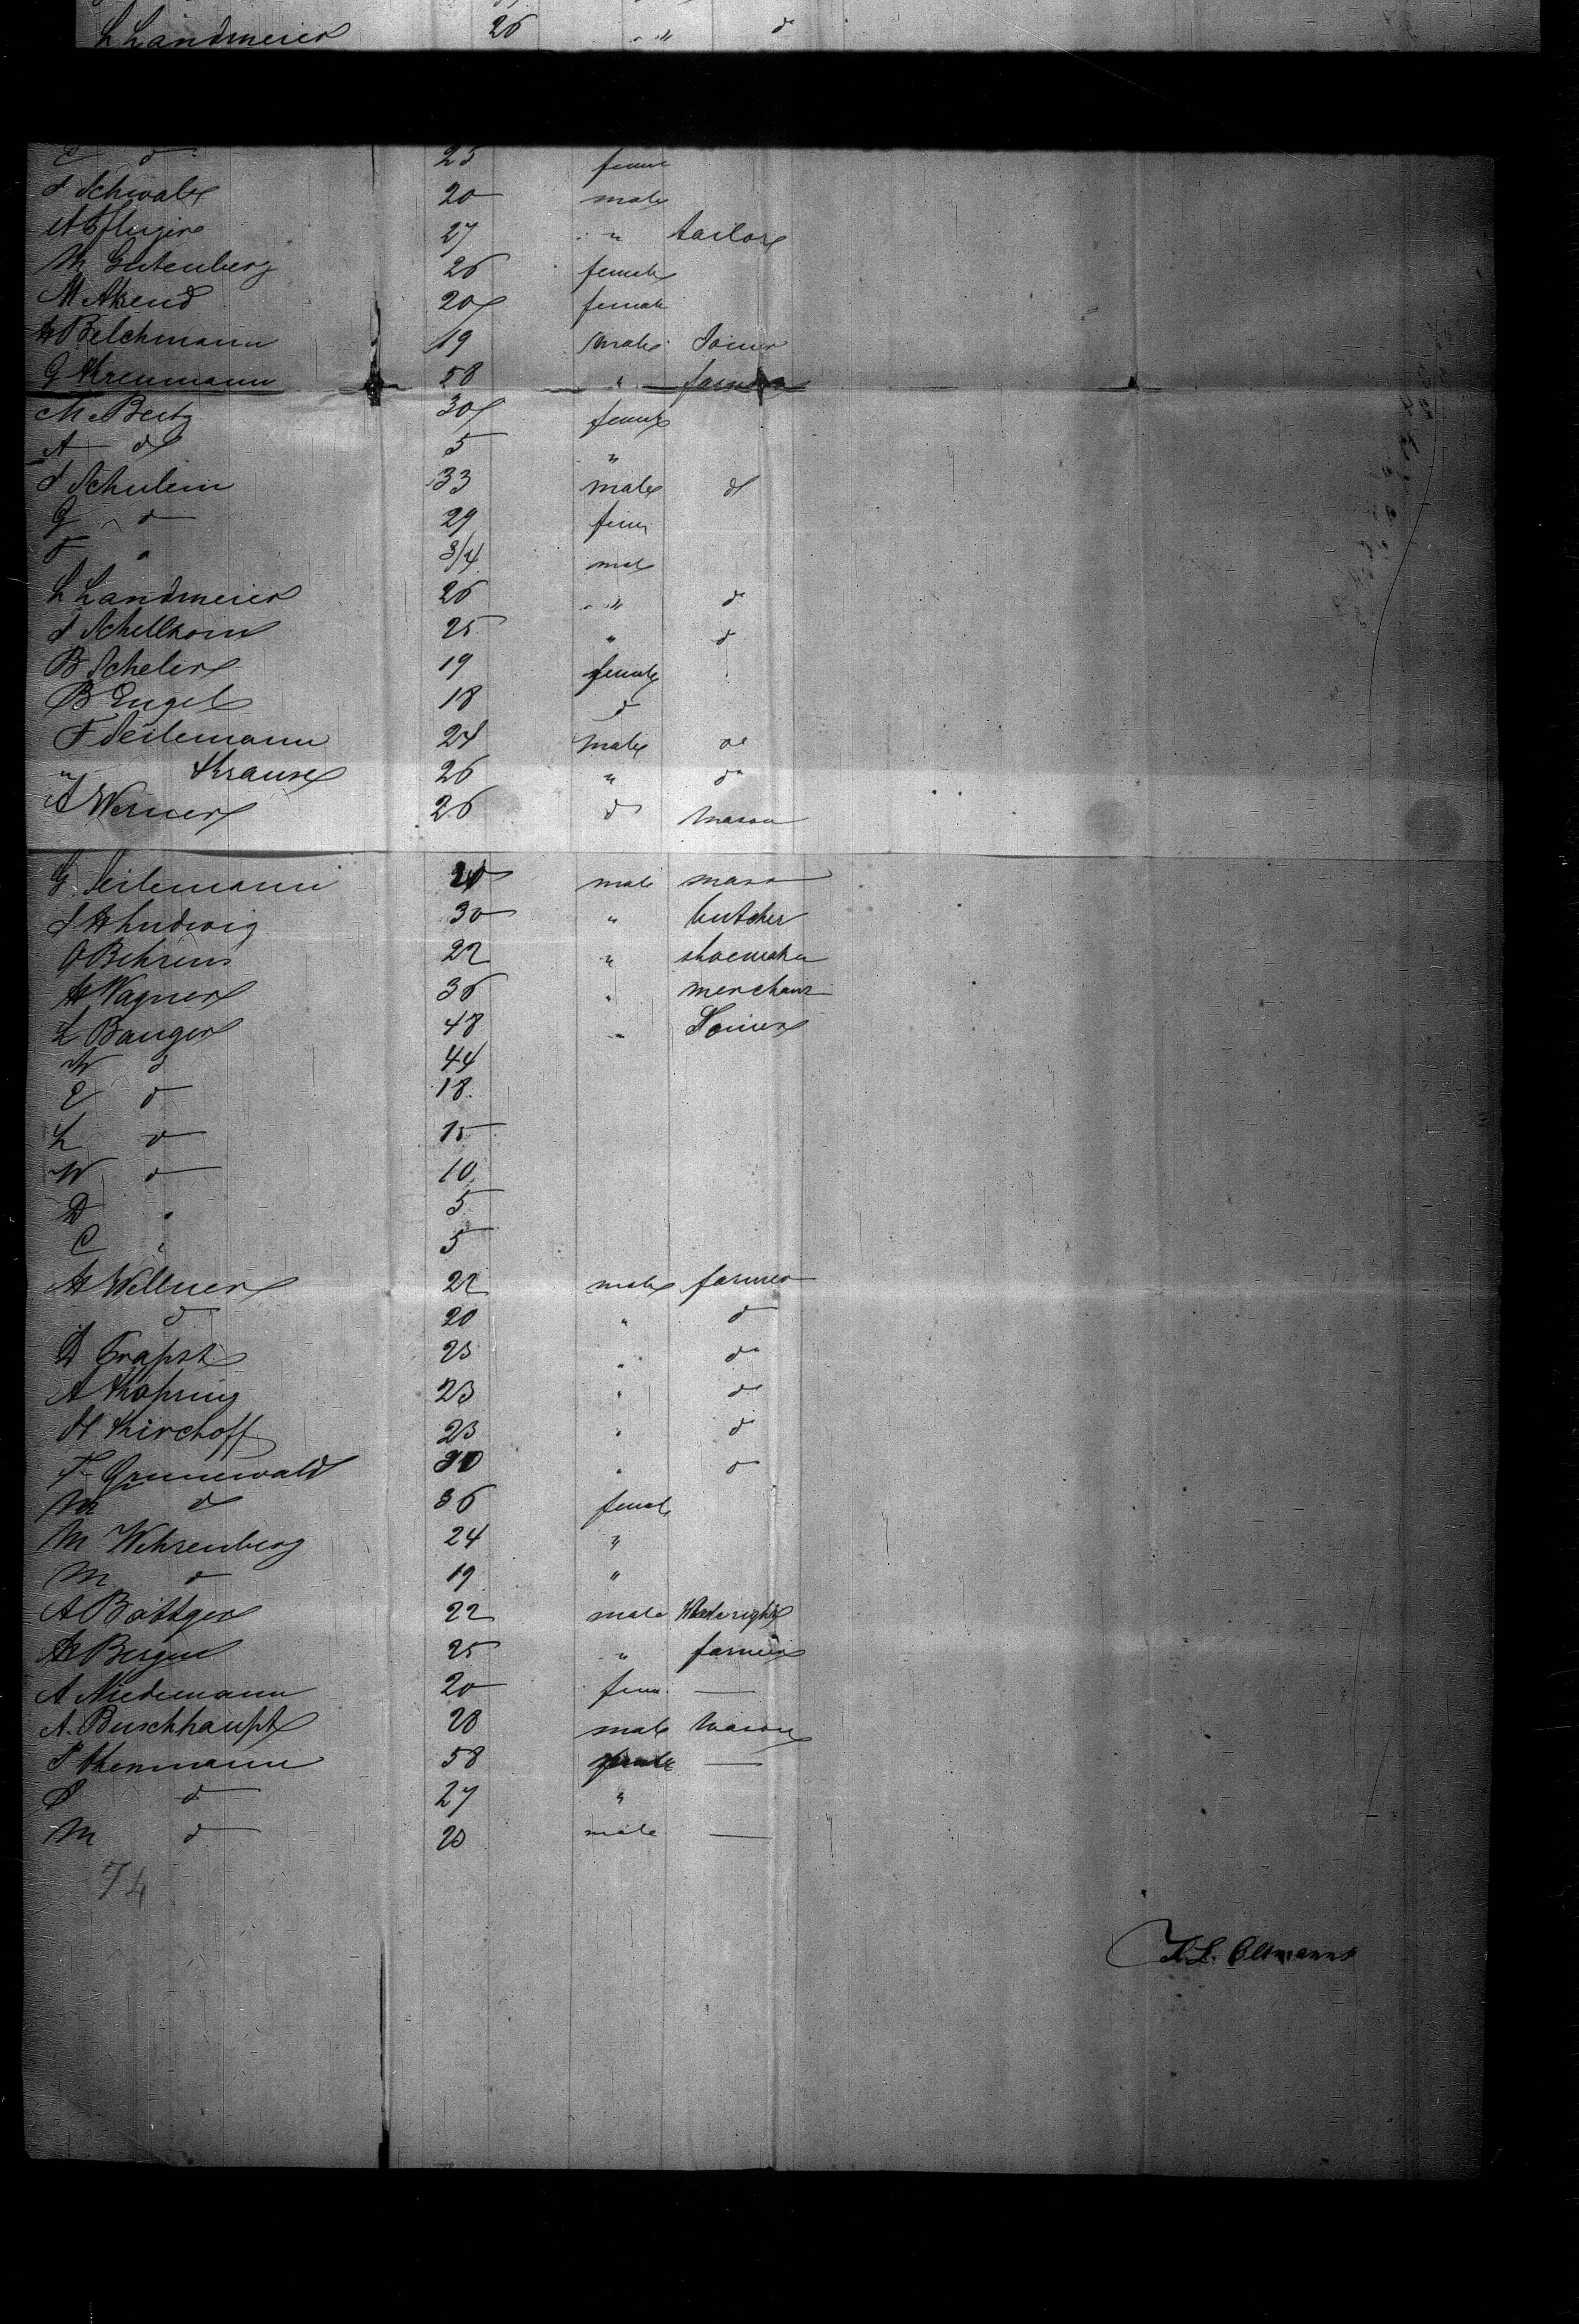 L Landmeier 26 " d
E d 25 fema
J Schwabe 20 male
A Pfluger 27 " tailor
M Gutenberg 26 female
M Arend 20 female
H Belchmann 19 male Joiner
G Krenmann 58 " farmer
M Beitz 30 female
A d 5 "
J Schulein 33 male d
G d 29 fem
F " 3/4 male
L Landmeier 26 " d
J Schellhorn 25 " d
B Scheler 19 female
B Engel 18 d
F Seilemann 24 male do
" Krause 26 " do
A Werner 26 d mason
G Seilemann 20 male mason
J H Ludwig 30 " butcher
O Behrens 22 " shoemaker
H Wagner 36 " merchant
L Banger 48 " Joiner
W d 44
E d 18
L d 15
W d 10
D " 5
C " 5
H Wellner 22 male farmer
d 20 " d
D Trapst 23 " do
A Kopring 23 " do
H Kirchoff 23 " d
F Grunewald 30 " d
M d 36 female
M Wehrenberg 24 "
M d 19 "
A Böttger 22 male
H Bergen 25 " farmer
A Niedemann 20 fem —
A. Buschhaupt 28 male mason
58 female —
d 27 "
M d 20 male —
74
H. L. Oltmanns